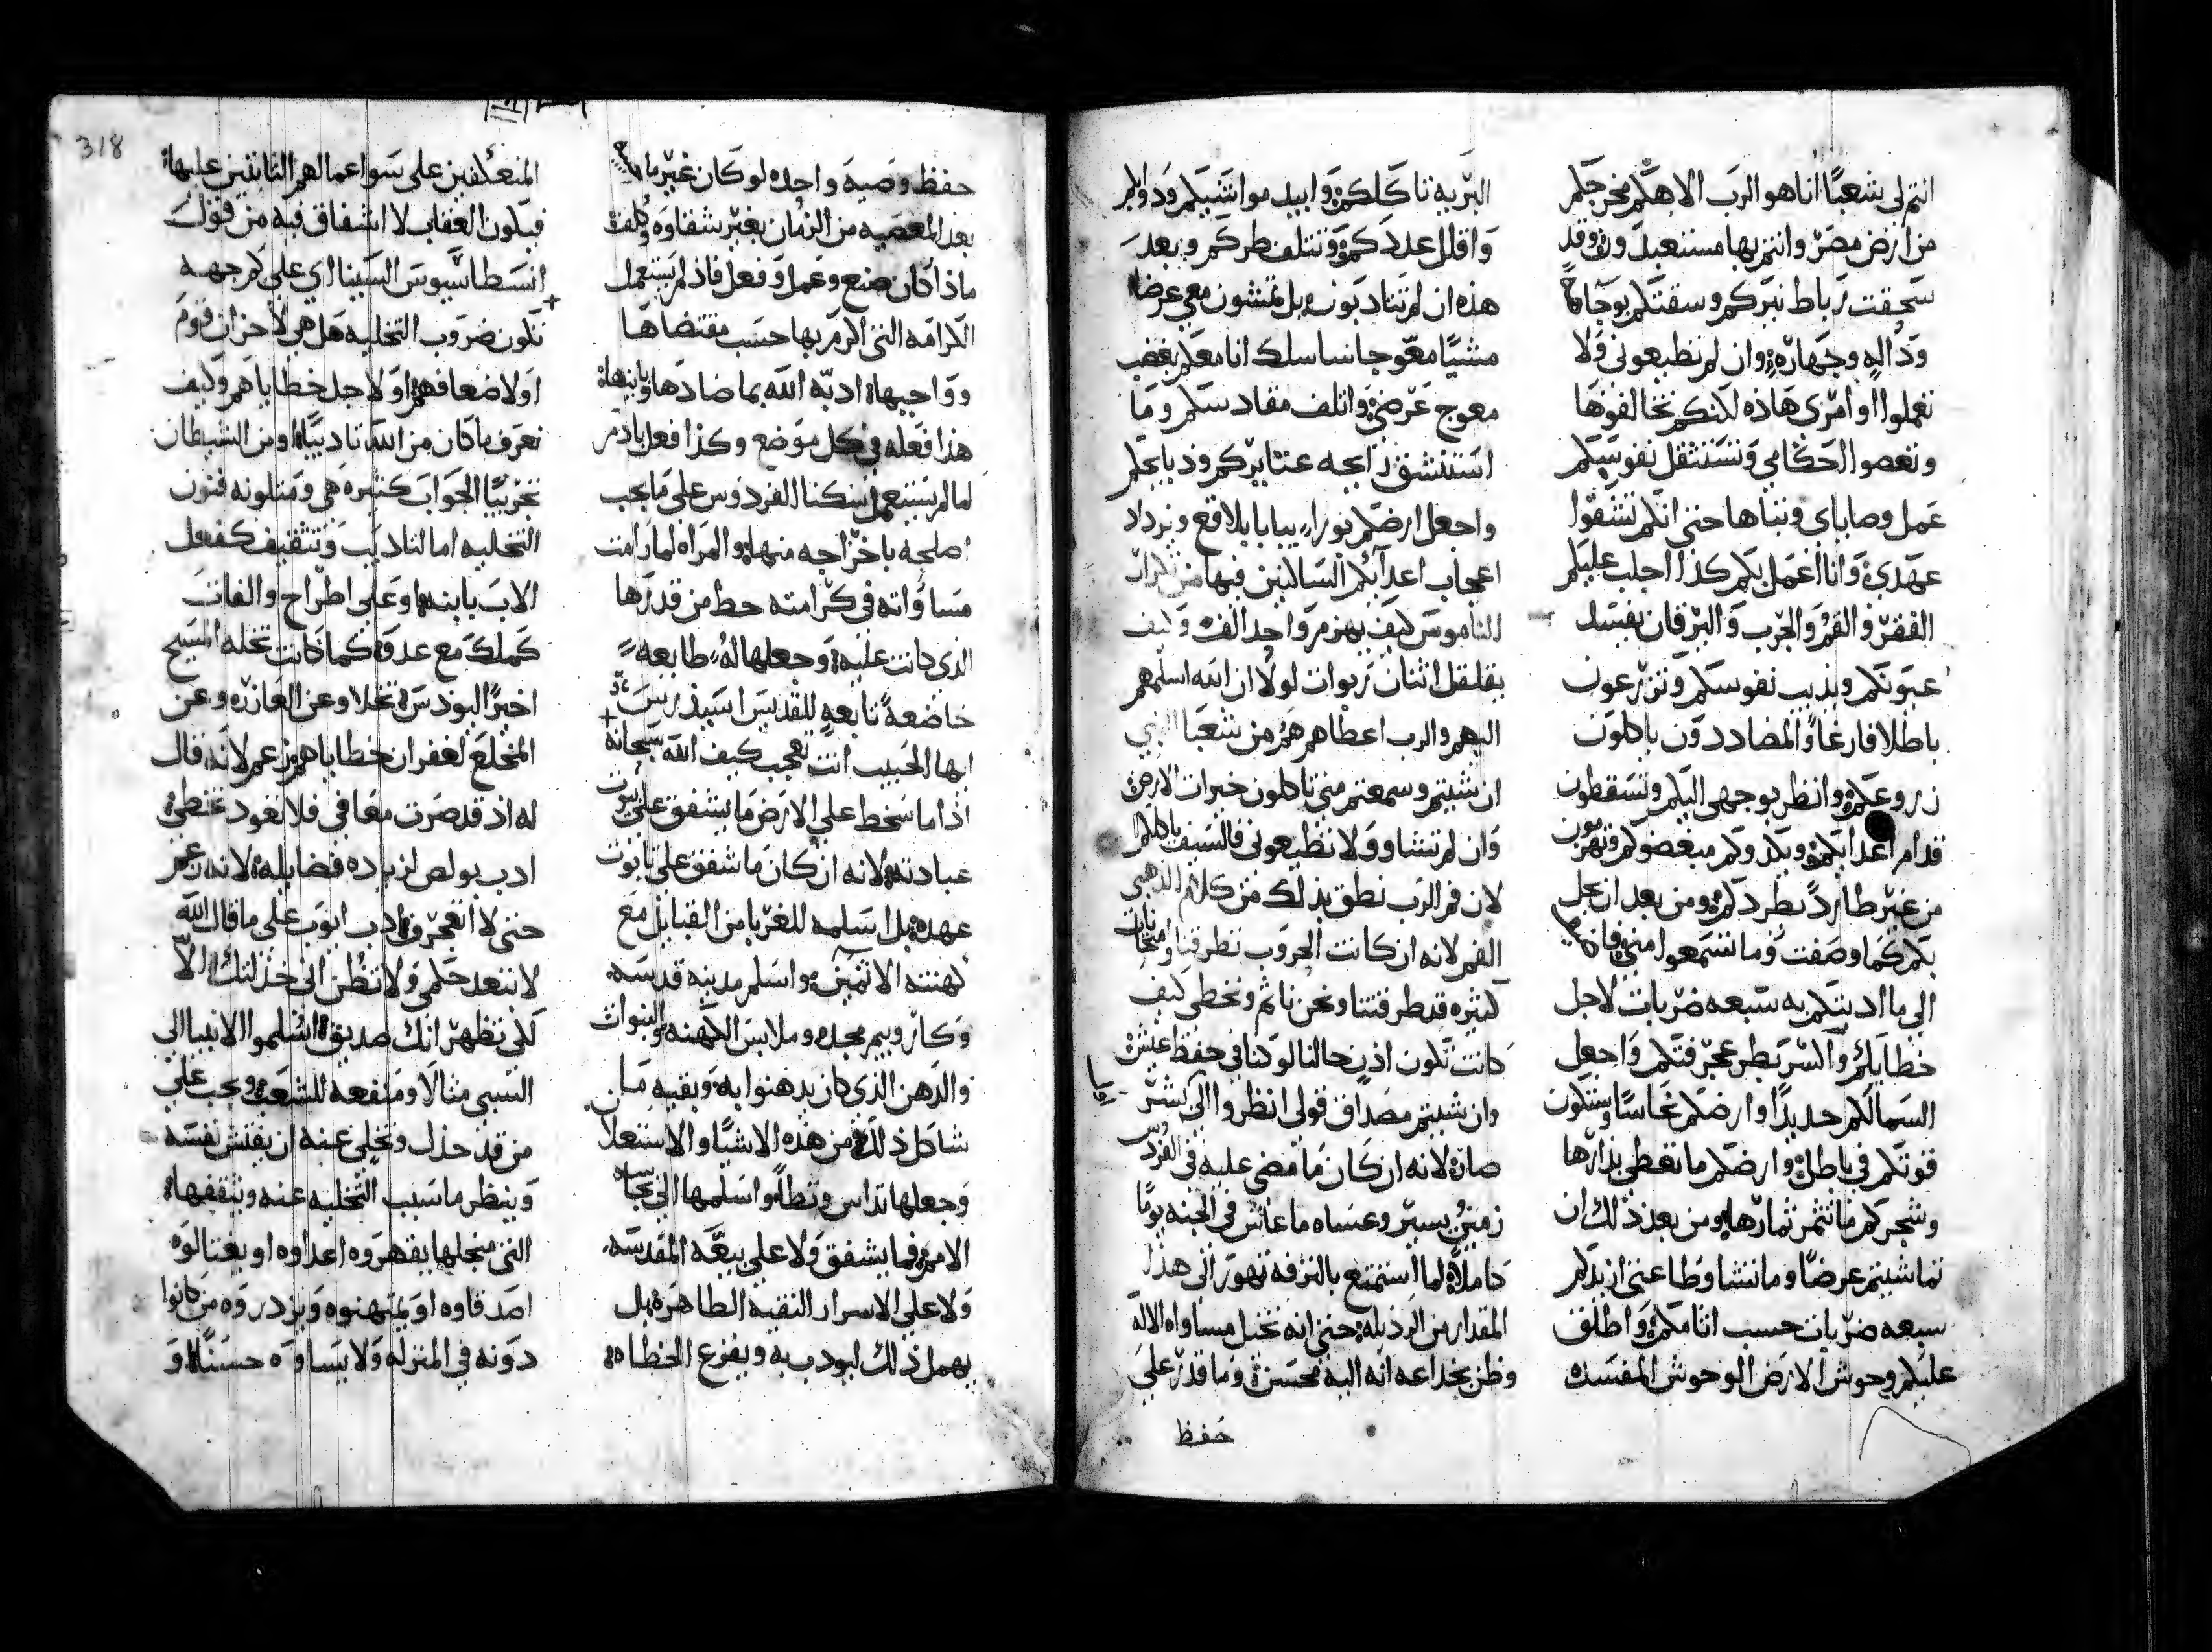 انتم لي شعبًا انا هو الرب الاهكم مخرجكم
من ارض مصر وانتم بها مستعبدون وقد
سحقت رباط نيركم وسقتكم بوجاهة
ودالة وجهارة وان لم تطيعوني ولا
تعملوا اوامري هاذه لاكنكم تخالفوها
وتعصوا احكامي وتستثقل نفوسكم
عمل وصاياي وتباها حتى انكم تشقوا
عهدي وانا اعمل بكم كذا اجلب عليكم
الفقر و والجرب واليرقان يفسد
عيونكم ويذيب نفوسكم وتزرعون
باطلا فارغا والمضاددون ياكلون
زروعكم وانظر بوجهي اليكم وتسقطون
قدام اعدايكم ويكدوكم مبغضوكم وتهربون
من غير طارد يطردكم ومن بعد ان يحل
بكم كما وصفت وما تسمعوا مني فان
الي ما ادبتكم به سبعه ضربات لاجل
خطاياكم واكسر بطر عجرفتكم واجعل
السما لكم حديدًا وارضكم نحاسًا وستكون
قوتكم في باطل وارضكم ما تعطي بذارها
وشجركم ما تثمر ثمارها ومن بعد ذلك ان
تماشيتم عرضًا وما تشاوطاعتي ازيدكم
سبعه ضربات حسب اثامكم واطلق
عليكم وحوش الارض الوحوش المفسده
البريه تاكلكم وابيد مواشيكم ودوابكم
واقلل عددكم وتتلف طركم وبعد
هذه ان لم تتادبون بل تمشون معي عرضا
مشيًا معوجا ساسلك انا معكم بغضب
معوج عرضي واتلف مقادسكم وما
استنشق رايحه عتايركم وذبايحكم
واجعل ارضكم بورا يبابا بلاقع ويزداد
اعجاب اعدآيكم الساكنين فيها من
الناموس كيف يهزم واحد الف وكيف
يقلقل اثنان ربوات لولا ان الله اسلمهم
اليهم والرب اعطاهم هم من شعبا النبي
ان شيتم وسمعتم مني تاكلون خيرات الارض
وان لم تشاو ولا تطيعوني فالسيف ياكلكم
لان فم الرب نطق بذلك من كلام الذهبي
الفم لانه ان كانت الحروب تطرقنا
كثيره قد طرقتنا ونحن ناثم ونخطي كيف
كانت تكون اذن حالنا لو كنا في حفظ اعيش
وان شيتم مصداق قولي انظروا الي كشر
صانه لانه ان كان ما مضي عليه في الفردوس
زمن يسير وعساه ما عاش في الجنه يومًا
كاملاً لما استمتع بالترفه تهور الي هذا
المقدار من الرذيله حتي انه تخيل مساواه الاله
وظن بخداعه انه اليه محسن وما قدر علي
حفظ
318
حفظ وصيه واحده لو كان غير ما
بعد المعصيه من الزمان بغير شقاوه وكلفه
ماذا كان صنع وعمل وفعل فاذ لم يستعمل
الكرامه التي اكرم بها حسب مقتضاها
وواجبها ادبه الله بما ضادها
هذا فعله في كل موضع وكذا فعل بادم
لما لم يستعمل سكنا الفردوس علي ما يجب
اصلحه باخراجه منها والمراه لما رامت
مساواته في كرامته حط من قدرها
الذي كانت عليه وجعلها له طايعه
خاضعةً تابعه للقديس اسيذرس
ايها الحبيب انت تعجب كيف الله سبحانه
اذا ما سخط علي الارض ما يشفق علي بيوت
عبادته لانه ان كان ما شفق علي تابوت
عهده بل اسلمه للغربا من القبايل مع
كهنته الاثمين واسلم مدينه قدسه
وكاروبيم مجده وملابس الكهنه والنبوات
والدهن الذي كان يدهنوا به وبقيه ما
شاكل ذلك من هذه الاشيا والاستعلان
وجعلها تداس وتطا واسلمها الي نجاسه
الامم فما يشفق ولا علي بيعه المقدسه
ولا علي الاسرار النقيه الطاهره بل
يهمل ذلك ليودب به ويفزع الخطاه
المنعكفين علي سو اعمالهم الثابتين عليها
فيكون العقاب لا اشفاق فيه من قول
انسطاسيوس السينااي علي كم جهه
تكون ضروب التخليه هل هي لاحزان قوم
او لاضعافهم او لاجل خطاياهم وكيف
نعرف ما كان من الله تاديبًا ومن الشيطان
تجريبًا الجواب كثيره هي ومتلونه فنون
التخليه اما لتاديب وتثقيف كفعل
الاب بابنه او علي اطراح والفات
كملك مع عدوه كما كانت تخله المسيح
اخيرًا ليودس تخلا وعن العازر وعن
المخلع لغفران خطاياهم زعم لانه قال
له اذ قد صرت معافي فلا تعود تخطي
ادب بولص لزياده فضايله لانه زعم
حتي لا اتعجرف ادب ايوب علي ما قال الله
لا تبعد حكمي ولا تظن اني خذلتك الا
لكي تظهر انك صديق اسلموا الانبيا الي
السبي مثالا ومنفعه للشعب ويجب علي
من قد خذل وتخلي عنه ان يفتش نفسه
وينظر ما سبب التخليه عنه ويثقفها
التي منجلها يقهروه اعداوه او يغتالوه
اصدقاوه او يمتهنوه ويزدروه من كانوا
دونه في المنزله ولا يساووه حسنًا و